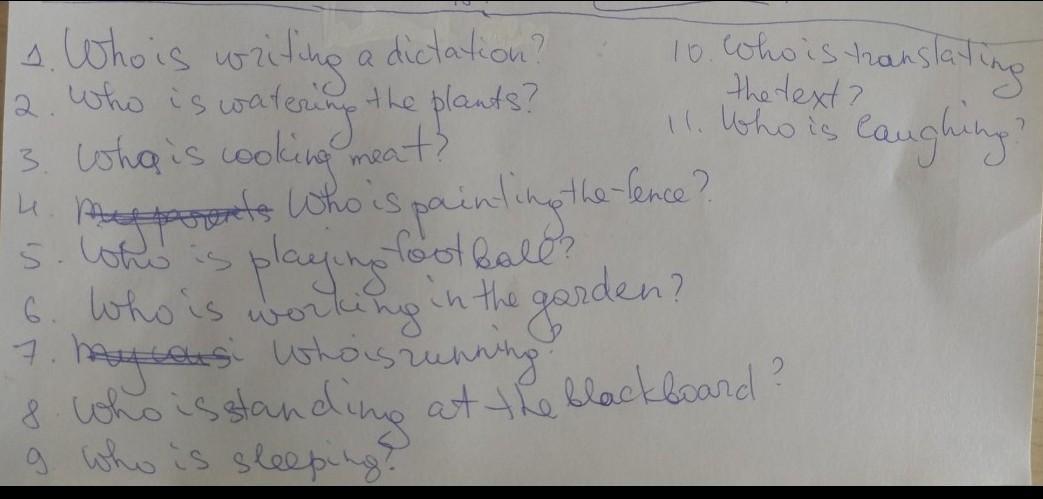 1. Who is writing a dictation?
2. Who is watering the plants?
3. Who is cooking meat?
4. my parents Who is painting the fence?
5. Who is playing football?
6. Who is working in the garden?
7. Who is running?
8. Who is standing at the blackboard?
9. Who is sleeping?
10. Who is translating
the text?
11. Who is laughing?